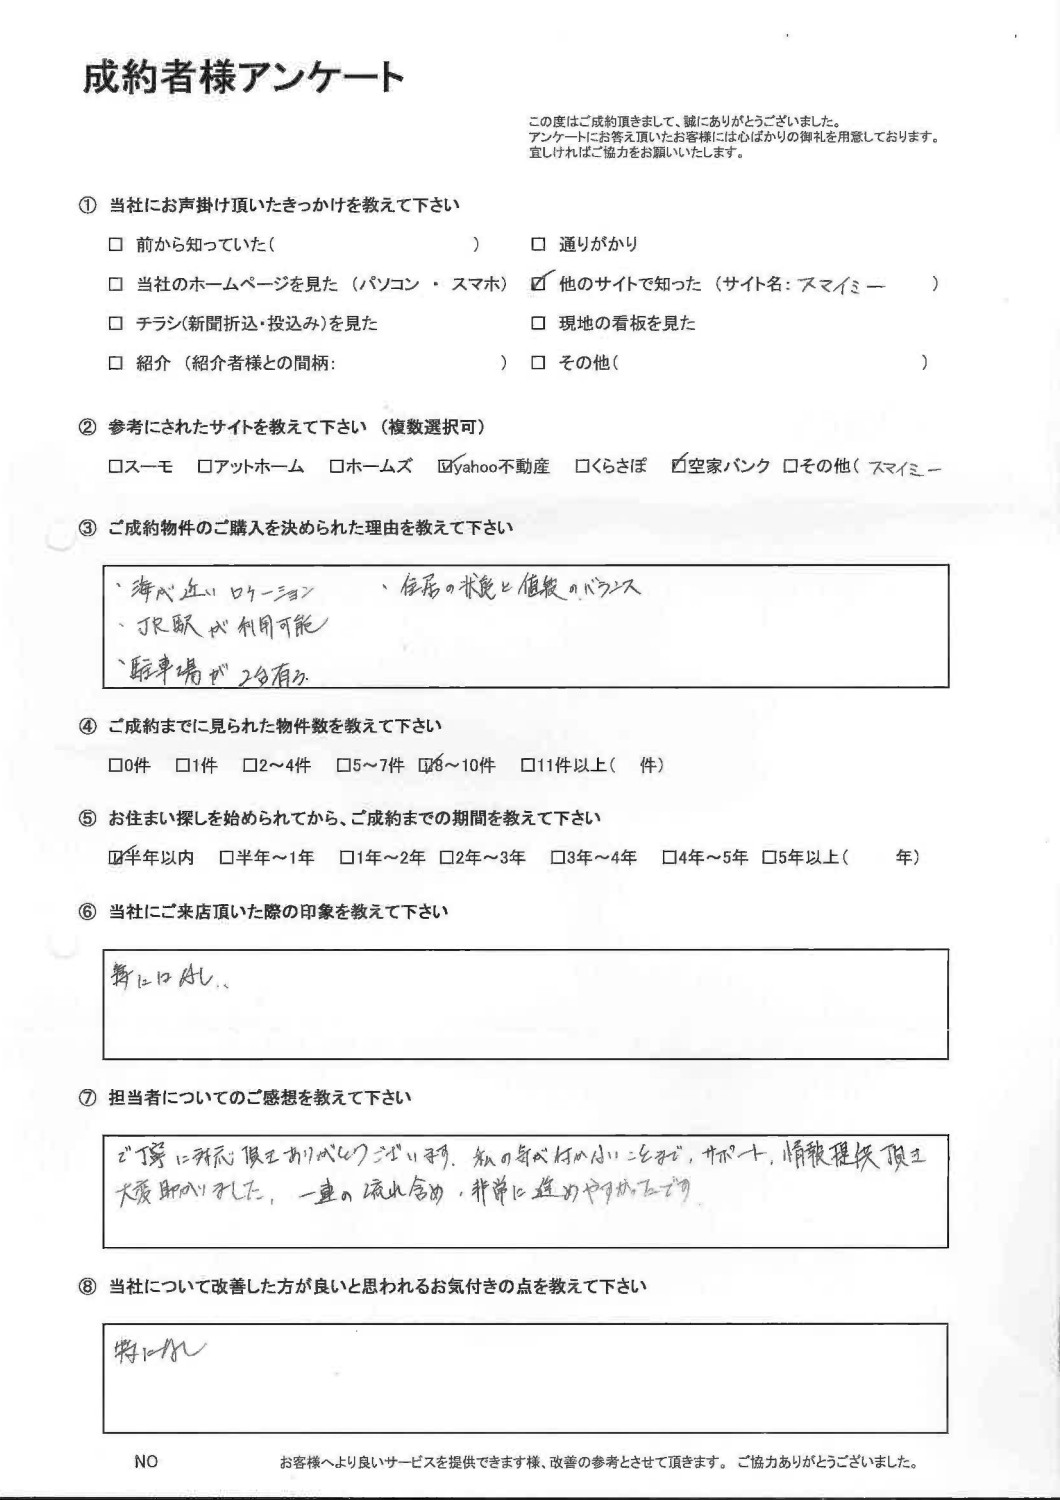 成約者様アンケート
この度はご成約頂きまして、誠にありがとうございました。
アンケートにお答え頂いたお客様には心ばかりの御礼を用意しております。
宜しければご協力をお願いいたします。
① 当社にお声掛け頂いたきっかけを教えて下さい
□ 前から知っていた( ) □ 通りがかり
□ 当社のホームページを見た (パソコン ・ スマホ) ☑ 他のサイトで知った (サイト名: スマイミー )
□ チラシ(新聞折込・投込み)を見た □ 現地の看板を見た
□ 紹介 (紹介者様との間柄: ) □ その他( )
② 参考にされたサイトを教えて下さい (複数選択可)
□スーモ □アットホーム □ホームズ ☑yahoo不動産 □くらさぽ ☑空家バンク □その他( スマイミー
③ ご成約物件のご購入を決められた理由を教えて下さい
・海が近いロケーション ・住居の状態と値段のバランス
・JR駅が利用可能
・駐車場が2台有る
④ ご成約までに見られた物件数を教えて下さい
□0件 □1件 □2～4件 □5～7件 ☑8～10件 □11件以上( 件)
⑤ お住まい探しを始められてから、ご成約までの期間を教えて下さい
☑半年以内 □半年～1年 □1年～2年 □2年～3年 □3年～4年 □4年～5年 □5年以上( 年)
⑥ 当社にご来店頂いた際の印象を教えて下さい
特にはなし、、
⑦ 担当者についてのご感想を教えて下さい
ご丁寧に対応頂きありがとうございます。私の気が付かないことまで、サポート、情報提供頂き
大変助かりました。一連の流れ含め、非常に進めやすかったです
⑧ 当社について改善した方が良いと思われるお気付きの点を教えて下さい
特になし
NO お客様へより良いサービスを提供できます様、改善の参考とさせて頂きます。 ご協力ありがとうございました。